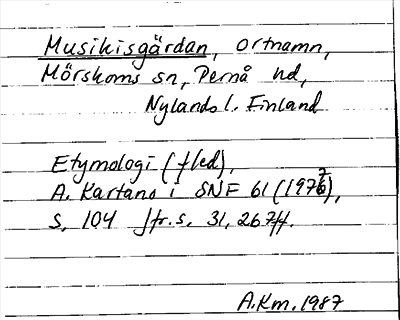 Musikisgärdan, ortnamn,
Mörskoms sn, Pernå hd,
Nylands l. Finland
Etymologi (fled),
A. Kartano i SNF 61 (1977),
s, 104 jfr.s. 31, 267ff.
A.Km. 1987